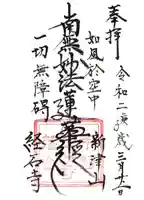 奉拝
令和二庚歳三月廿六日
如風於空中
南無妙法蓮華経
一切無障碍
新津山
経石寺